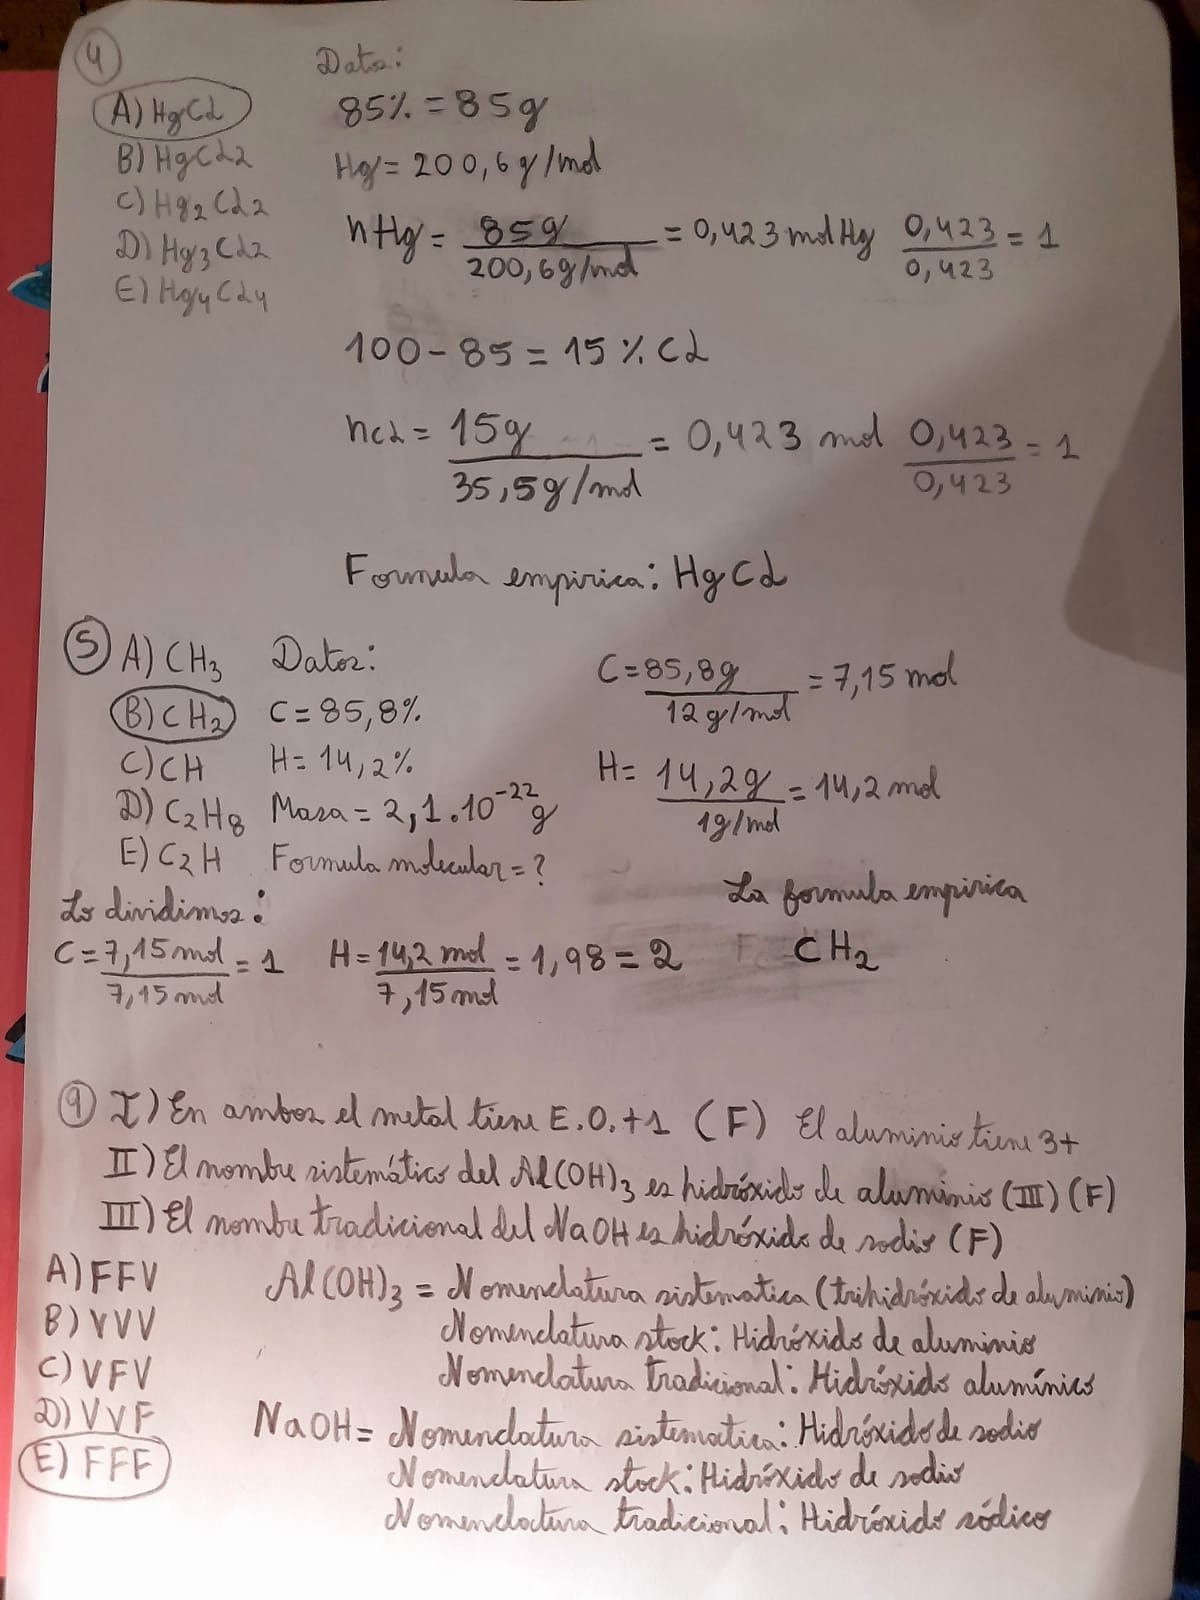 4
Datos:
A) HgCl
85% = 85g
B) HgCl2
Hg = 200,6 g/mol
C) Hg2Cl2
D) Hg3Cl2
E) Hg4Cl4
nHg = 85g / 200,6g/mol = 0,423 mol Hg 0,423 / 0,423 = 1
100 - 85 = 15 % Cl
nCl = 15g / 35,5g/mol = 0,423 mol 0,423 / 0,423 = 1
Formula empirica: HgCl
5 A) CH3 Datos:
C = 85,8g / 12 g/mol = 7,15 mol
B) CH2 C = 85,8%
C) CH H = 14,2%
H = 14,2g / 1g/mol = 14,2 mol
D) C2H8 Masa = 2,1.10-22 g
E) C2H Formula molecular = ?
La formula empirica
CH2
Lo dividimos:
C = 7,15 mol / 7,15 mol = 1 H = 14,2 mol / 7,15 mol = 1,98 = 2
9 I) En ambos el metal tiene E.O.+1 (F) El aluminio tiene 3+
II) El nombre sistemático del Al(OH)3 es hidróxido de aluminio (III) (F)
III) El nombre tradicional del NaOH es hidróxido de sodio (F)
A) FFV
B) VVV
C) VFV
D) VVF
E) FFF
Al(OH)3 = Nomenclatura sistematica (trihidróxido de aluminio)
Nomenclatura stock: Hidróxido de aluminio
Nomenclatura tradicional: Hidróxido alumínico
NaOH = Nomenclatura sistematica: Hidróxido de sodio
Nomenclatura stock: Hidróxido de sodio
Nomenclatura tradicional: Hidróxido sódico